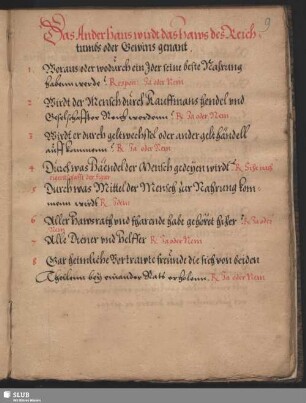 9
Das Ander haus wirdt das haus des Reich
tumbs oder Gewins genant.
1 Woraus oder wodurch ein Jder seine beste Nahrung
haben werde? Respon: Ja oder Nein
2 Wirdt der Mensch durch Kauffmans hendel vnd
Geselschafften Reich werdenn? R. Ja oder Nein
3 Wirdt er durch geltwechssel oder ander gelt händell
auff kommenn? R. Ja oder Nein
4 Durch was Händel der Mensch gedeyen wirdt? R.
5 Durch was Mittel der Mensch zur Nahrung kom-
men wirdt? R. Idem
6 Aller Hausratth vnd fharende habe gehöret hieher? R. Ja oder
Nein
7 Alle Diener vnd Helffer R. Ja oder Nein
8 Gar heimliche Vertrawte freunde die sich von beiden
Theilenn bey einander Rats erholenn. R. Ja oder Nein
SLUB